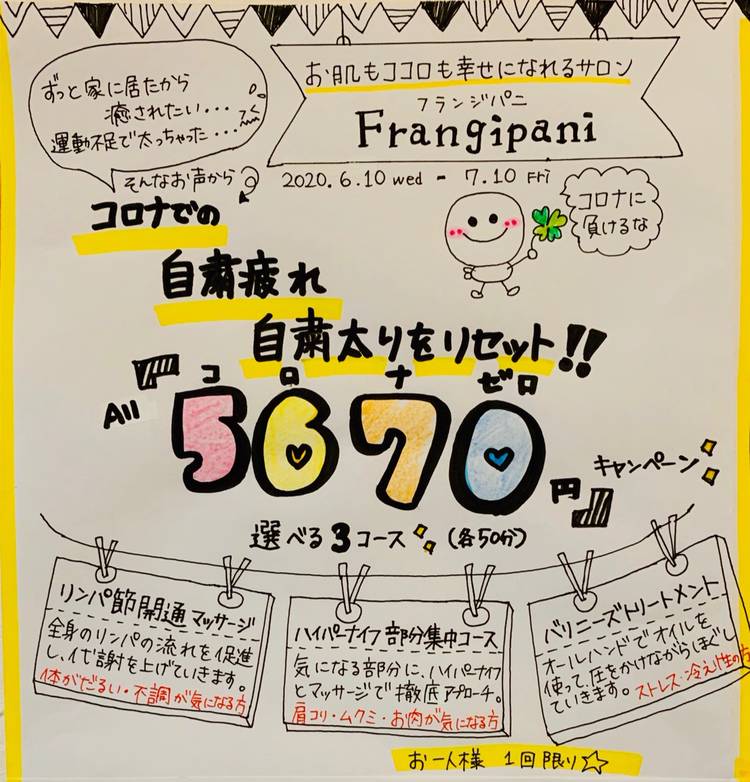 お肌もココロも幸せになれるサロン
フランジパニ
Frangipani
2020.6.10 wed - 7.10 Fri
ずっと家に居たから
癒されたい・・・
運動不足で太っちゃった・・・
そんなお声から
コロナに
負けるな
コロナでの
自粛疲れ
自粛太りをリセット!!
コロナゼロ
All『5670円』キャンペーン
選べる3コース (各50分)
リンパ節開通マッサージ
全身のリンパの流れを促進
し、代謝を上げていきます。
体がだるい・不調が気になる方
ハイパーナイフ部分集中コース
気になる部分に、ハイパーナイフ
とマッサージで撤底アプローチ。
肩コリ・ムクミ・お肉が気になる方
バリニーズトリートメント
オールハンドでオイルを
使って、圧をかけながらほぐし
ていきます。ストレス・冷え性の方
お一人様 1回限り☆